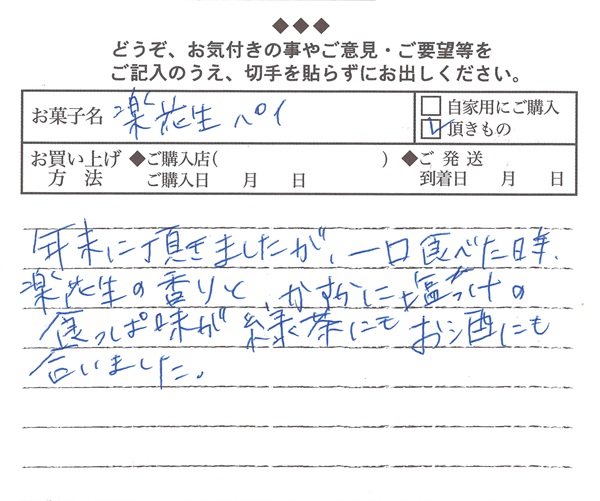 ◆◆◆
どうぞ、お気付きの事やご意見・ご要望等を
ご記入のうえ、切手を貼らずにお出しください。
お菓子名 楽花生パイ □自家用にご購入
☑頂きもの
お買い上げ ◆ご購入店( ) ◆ご発送
方法 ご購入日 月 日 到着日 月 日
年末に頂きましたが、一口食べた時、
楽花生の香りと、かすかに塩っけの
食っぱ味が緑茶にもお酒にも
合いました。